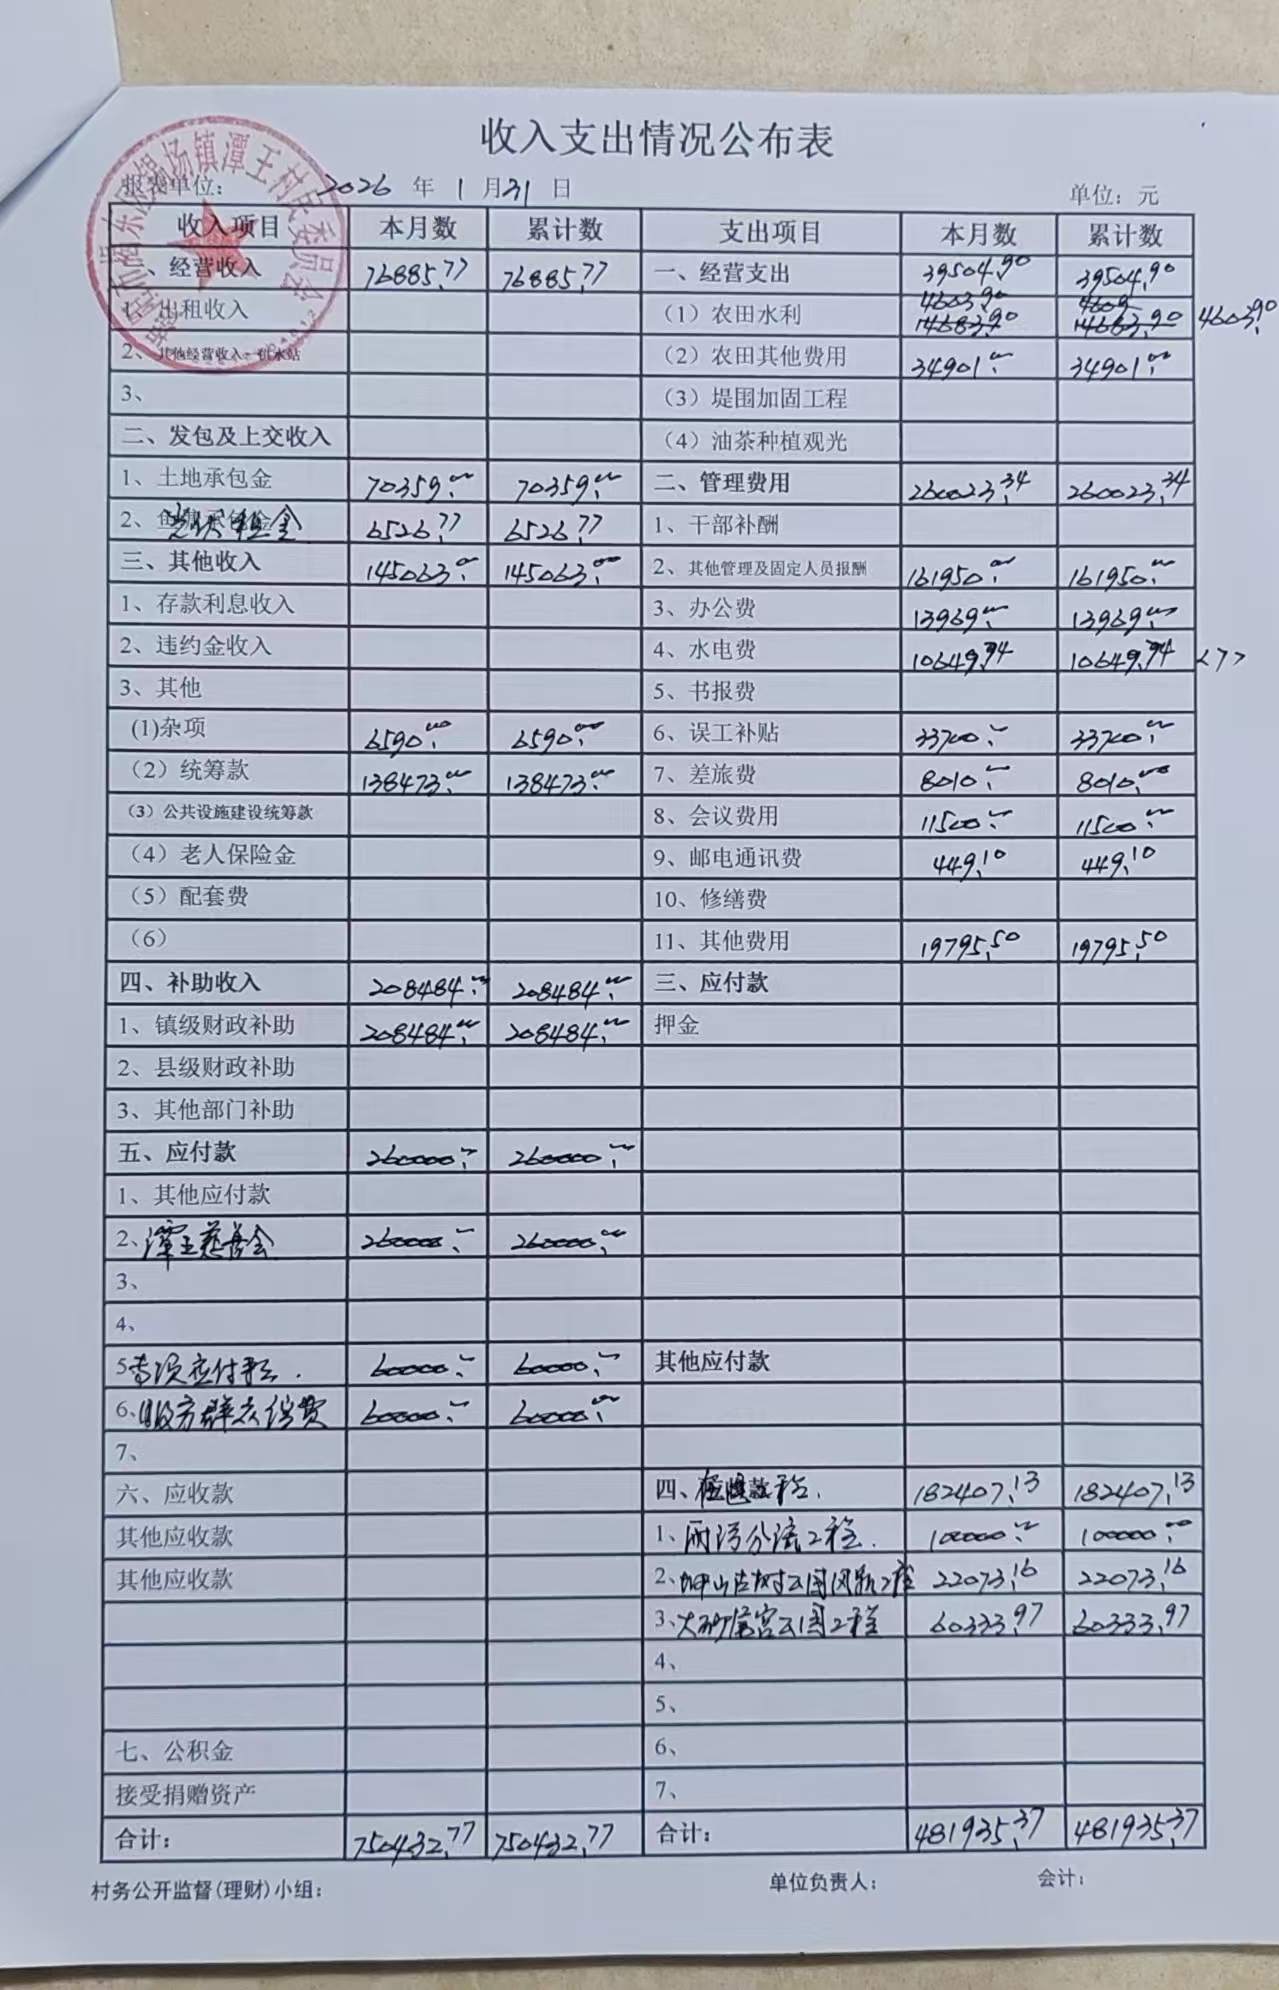 收入支出情况公布表
报表单位： 2026 年 1 月 31 日 单位：元
收入项目 本月数 累计数 支出项目 本月数 累计数
一、经营收入 76885.77 76885.77 一、经营支出 39504.90 39504.90
1、出租收入 （1）农田水利 4603.90 14683.90 4603 14683.90 4603.90
2、其他经营收入-供水站 （2）农田其他费用 34901.00 34901.00
3、 （3）堤围加固工程
二、发包及上交收入 （4）油茶种植观光
1、土地承包金 70359.00 70359.00 二、管理费用 260023.34 260023.34
2、光伏租金 6526.77 6526.77 1、干部补酬
三、其他收入 145063.00 145063.00 2、其他管理及固定人员报酬 161950.00 161950.00
1、存款利息收入 3、办公费 13969.00 13969.00
2、违约金收入 4、水电费 10649.74 10649.74
3、其他 5、书报费
(1)杂项 6590.00 6590.00 6、误工补贴 33700.00 33700.00
（2）统筹款 138473.00 138473.00 7、差旅费 8010.00 8010.00
（3）公共设施建设统筹款 8、会议费用 11500.00 11500.00
（4）老人保险金 9、邮电通讯费 449.10 449.10
（5）配套费 10、修缮费
（6） 11、其他费用 19795.50 19795.50
四、补助收入 208484.00 208484.00 三、应付款
1、镇级财政补助 208484.00 208484.00 押金
2、县级财政补助
3、其他部门补助
五、应付款 260000.00 260000.00
1、其他应付款
2、潭王慈善会 260000.00 260000.00
3、
4、
5专项应付款. 60000.00 60000.00 其他应付款
6、群众 60000.00 60000.00
7、
六、应收款 四、工程. 182407.13 182407.13
其他应收款 1、雨污分流工程. 100000.00 100000.00
其他应收款 2、公园 22073.16 22073.16
3、宫公园工程 60333.97 60333.97
4、
5、
七、公积金 6、
接受捐赠资产 7、
合计： 750432.77 750432.77 合计： 481935.37 481935.37
村务公开监督(理财)小组： 单位负责人： 会计：